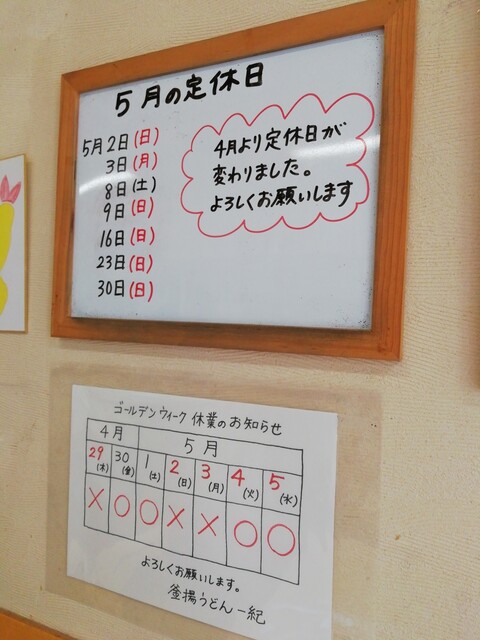 5月の定休日
5月2日(日)
3日(月)
8日(土)
9日(日)
16日(日)
23日(日)
30日(日)
4月より定休日が
変わりました。
よろしくお願いします
ゴールデンウィーク 休業のお知らせ
4月 5月
29(木) 30(金) 1(土) 2(日) 3(月) 4(火) 5(水)
× ○ ○ × × ○ ○
よろしくお願いします。
釜揚うどん 一紀